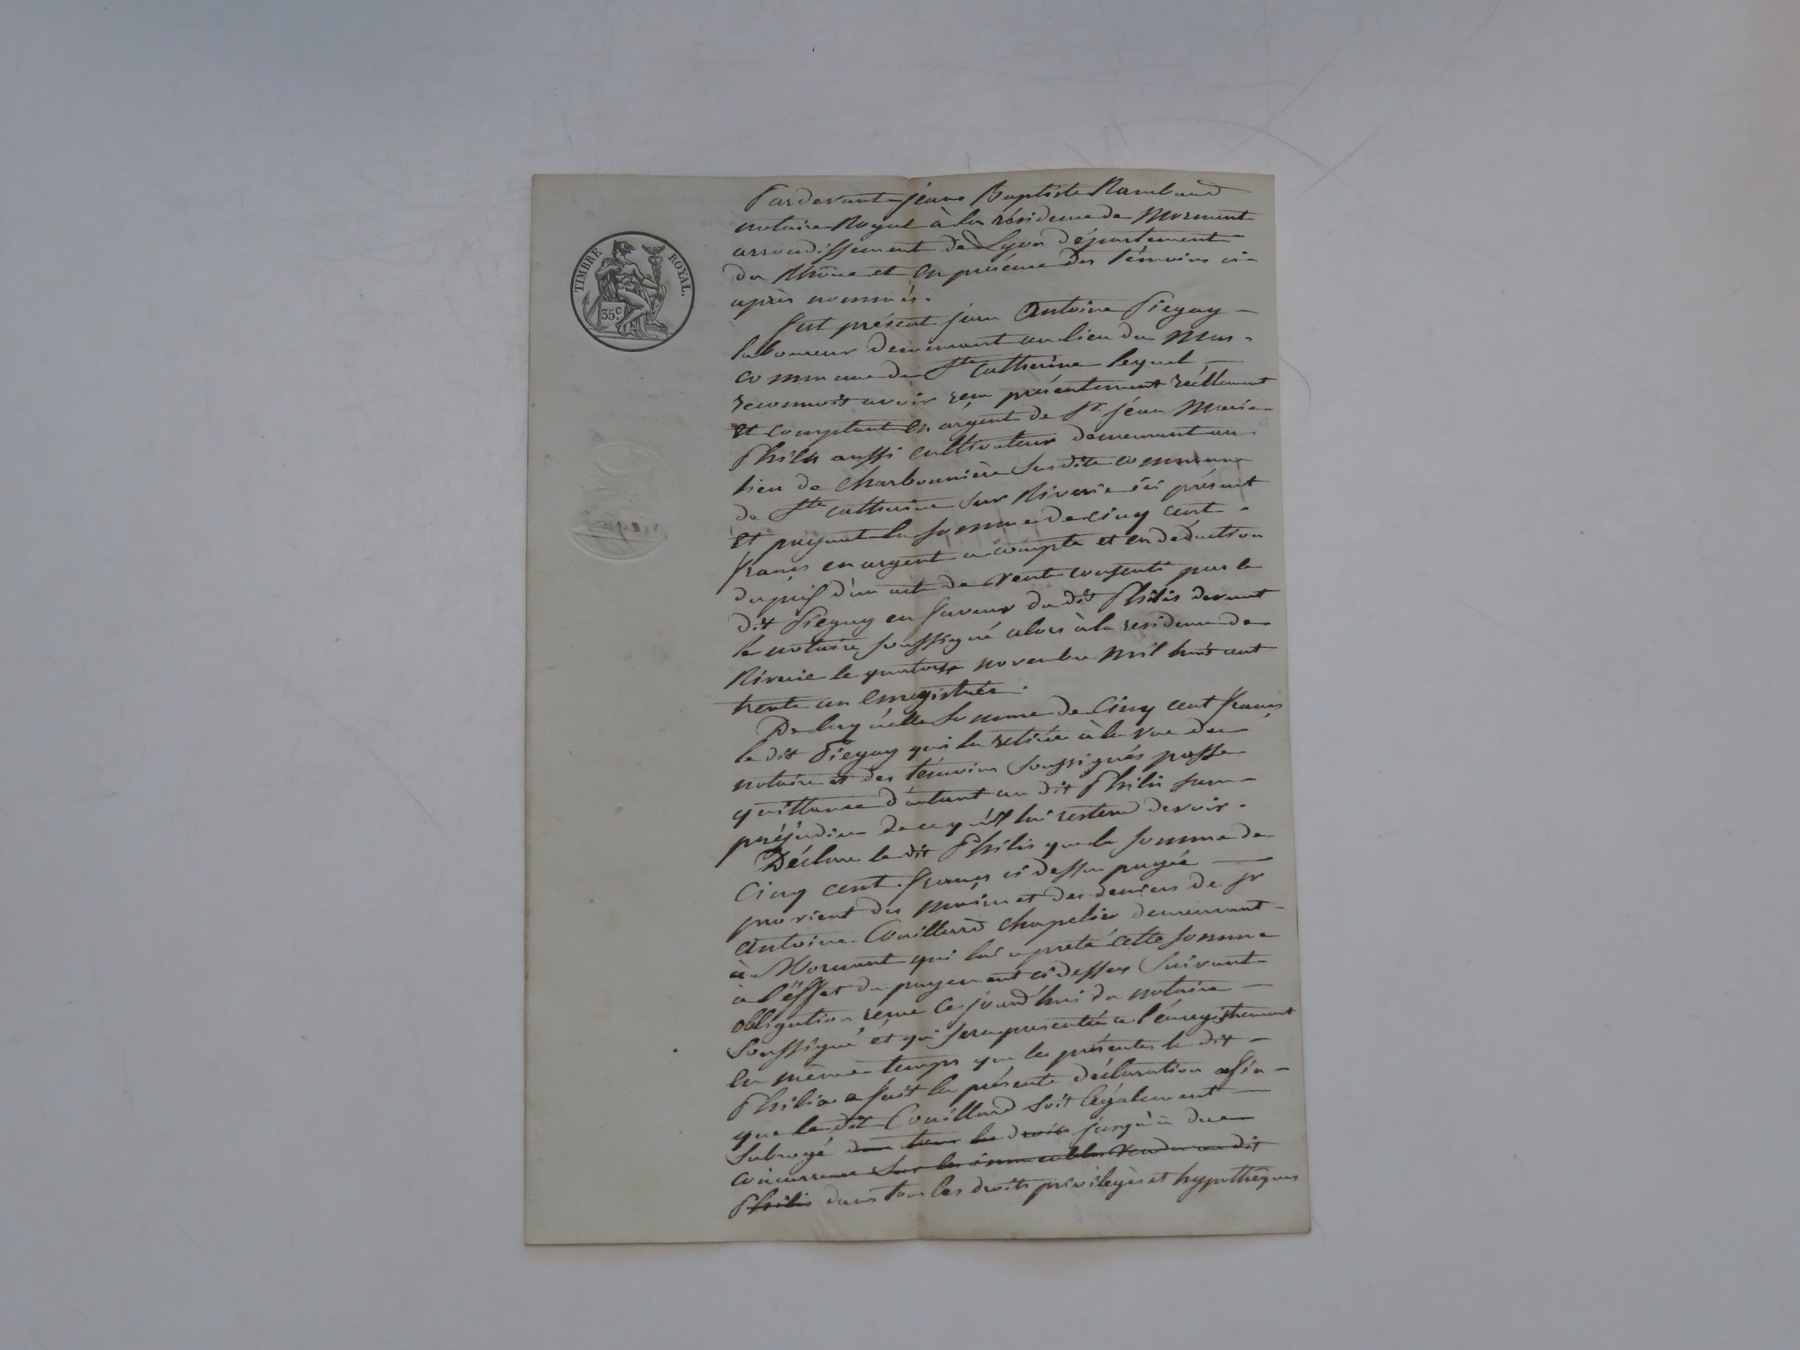 TIMBRE ROYAL.
35c.
Pardevant jean Baptiste Rambaud
notaire Royal à la résidence de Mornant
arrondissement de Lyon département
du Rhône et en présence des témoins ci-
après nommés.
fut présent jean Antoine Piegay
laboureur demeurant au lieu du Mas
commune de Ste Catherine lequel
reconnoit avoir reçu présentement réellement
et comptant en argent de Sr jean Marie
Philis aussi cultivateur demeurant au
lieu de Charbonnière susdite commune
de Ste Catherine sur Riverie ici présent
et payant la somme de cinq cent
francs en argent a compte et en déduction
du prif d'un acte de vente consenti par le
dit Piegay en faveur du dit Philis devant
le notaire soussigné alors à la residence de
Riverie le quatorze novembre mil huit cent
trente un enregistrée.
De laquelle somme de Cinq cent francs
le dit Piegay qui la retirée à la vue du
notaire et des témoins soussignés passe
quittance d'autant au dit Philis sans
préjudice de ce qu'il lui restera devoir.
Déclare le dit Philis que la somme de
Cinq cent francs ci dessus payée
provient des mains et des deniers de sr
Antoine Couillard chapelier demeurant
à Mornant qui lui a preté cette somme
à l'éffet du payement ci dessus suivant
obligation reçue ce jourd'hui du notaire
soussigné et qui sera presentée a l'enregistrement
en même temps que les présentes le dit
Philis a fait la présente déclaration afin
que le dit Couillard soit légalement
subrogé dans tous les droits jusqu'à due
concurrence sur les immeubles vendus au dit
Philis dans tous les droits privilèges et hypothèques